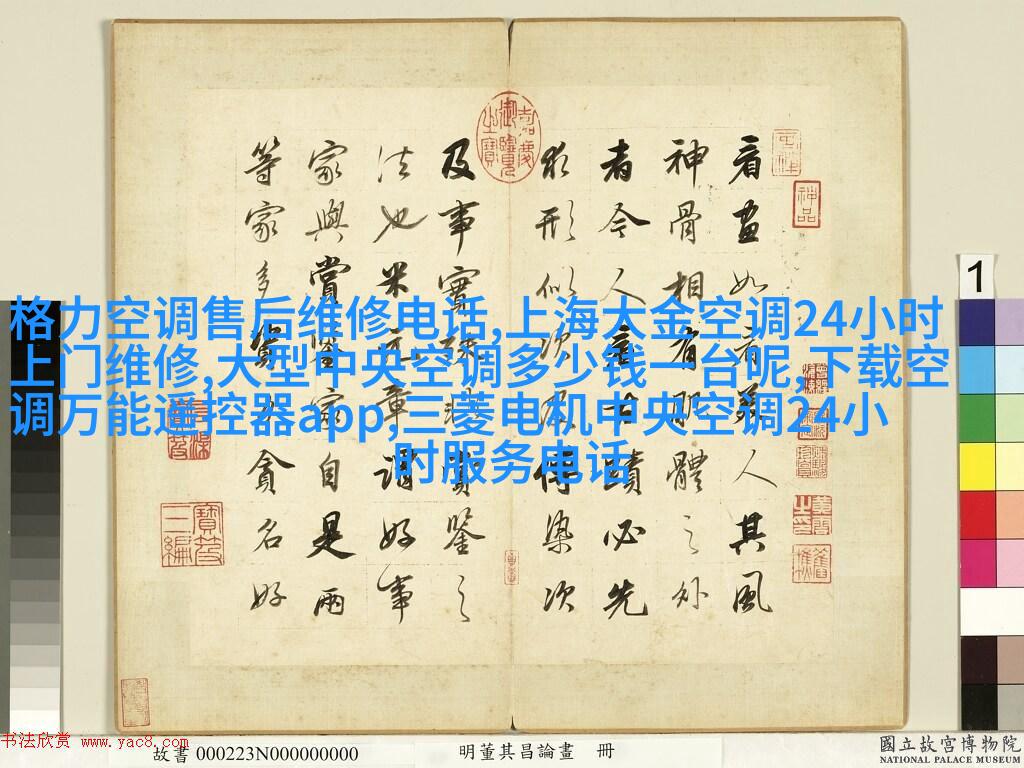 格力空调售后维修电话,上海大金空调24小时
上门维修,大型中央空调多少钱一台呢,下载空
调万能遥控器app,三菱电机中央空调24小
时服务电话
看畫如看美人其風
神骨相有肌體之外
者今人看古蹟必先
求形似次及傳染次
及事實殊非賞鑒之
法也米元章謂好事
家與賞鑒家自是兩
等家多資力貪名好
嘉慶御覽之寶
神品
寶笈三編
1
书法欣赏 www.yac8.com
故書 000223N000000000
明董其昌論畫 冊
國立故宮博物院
NATIONAL PALACE MUSEUM